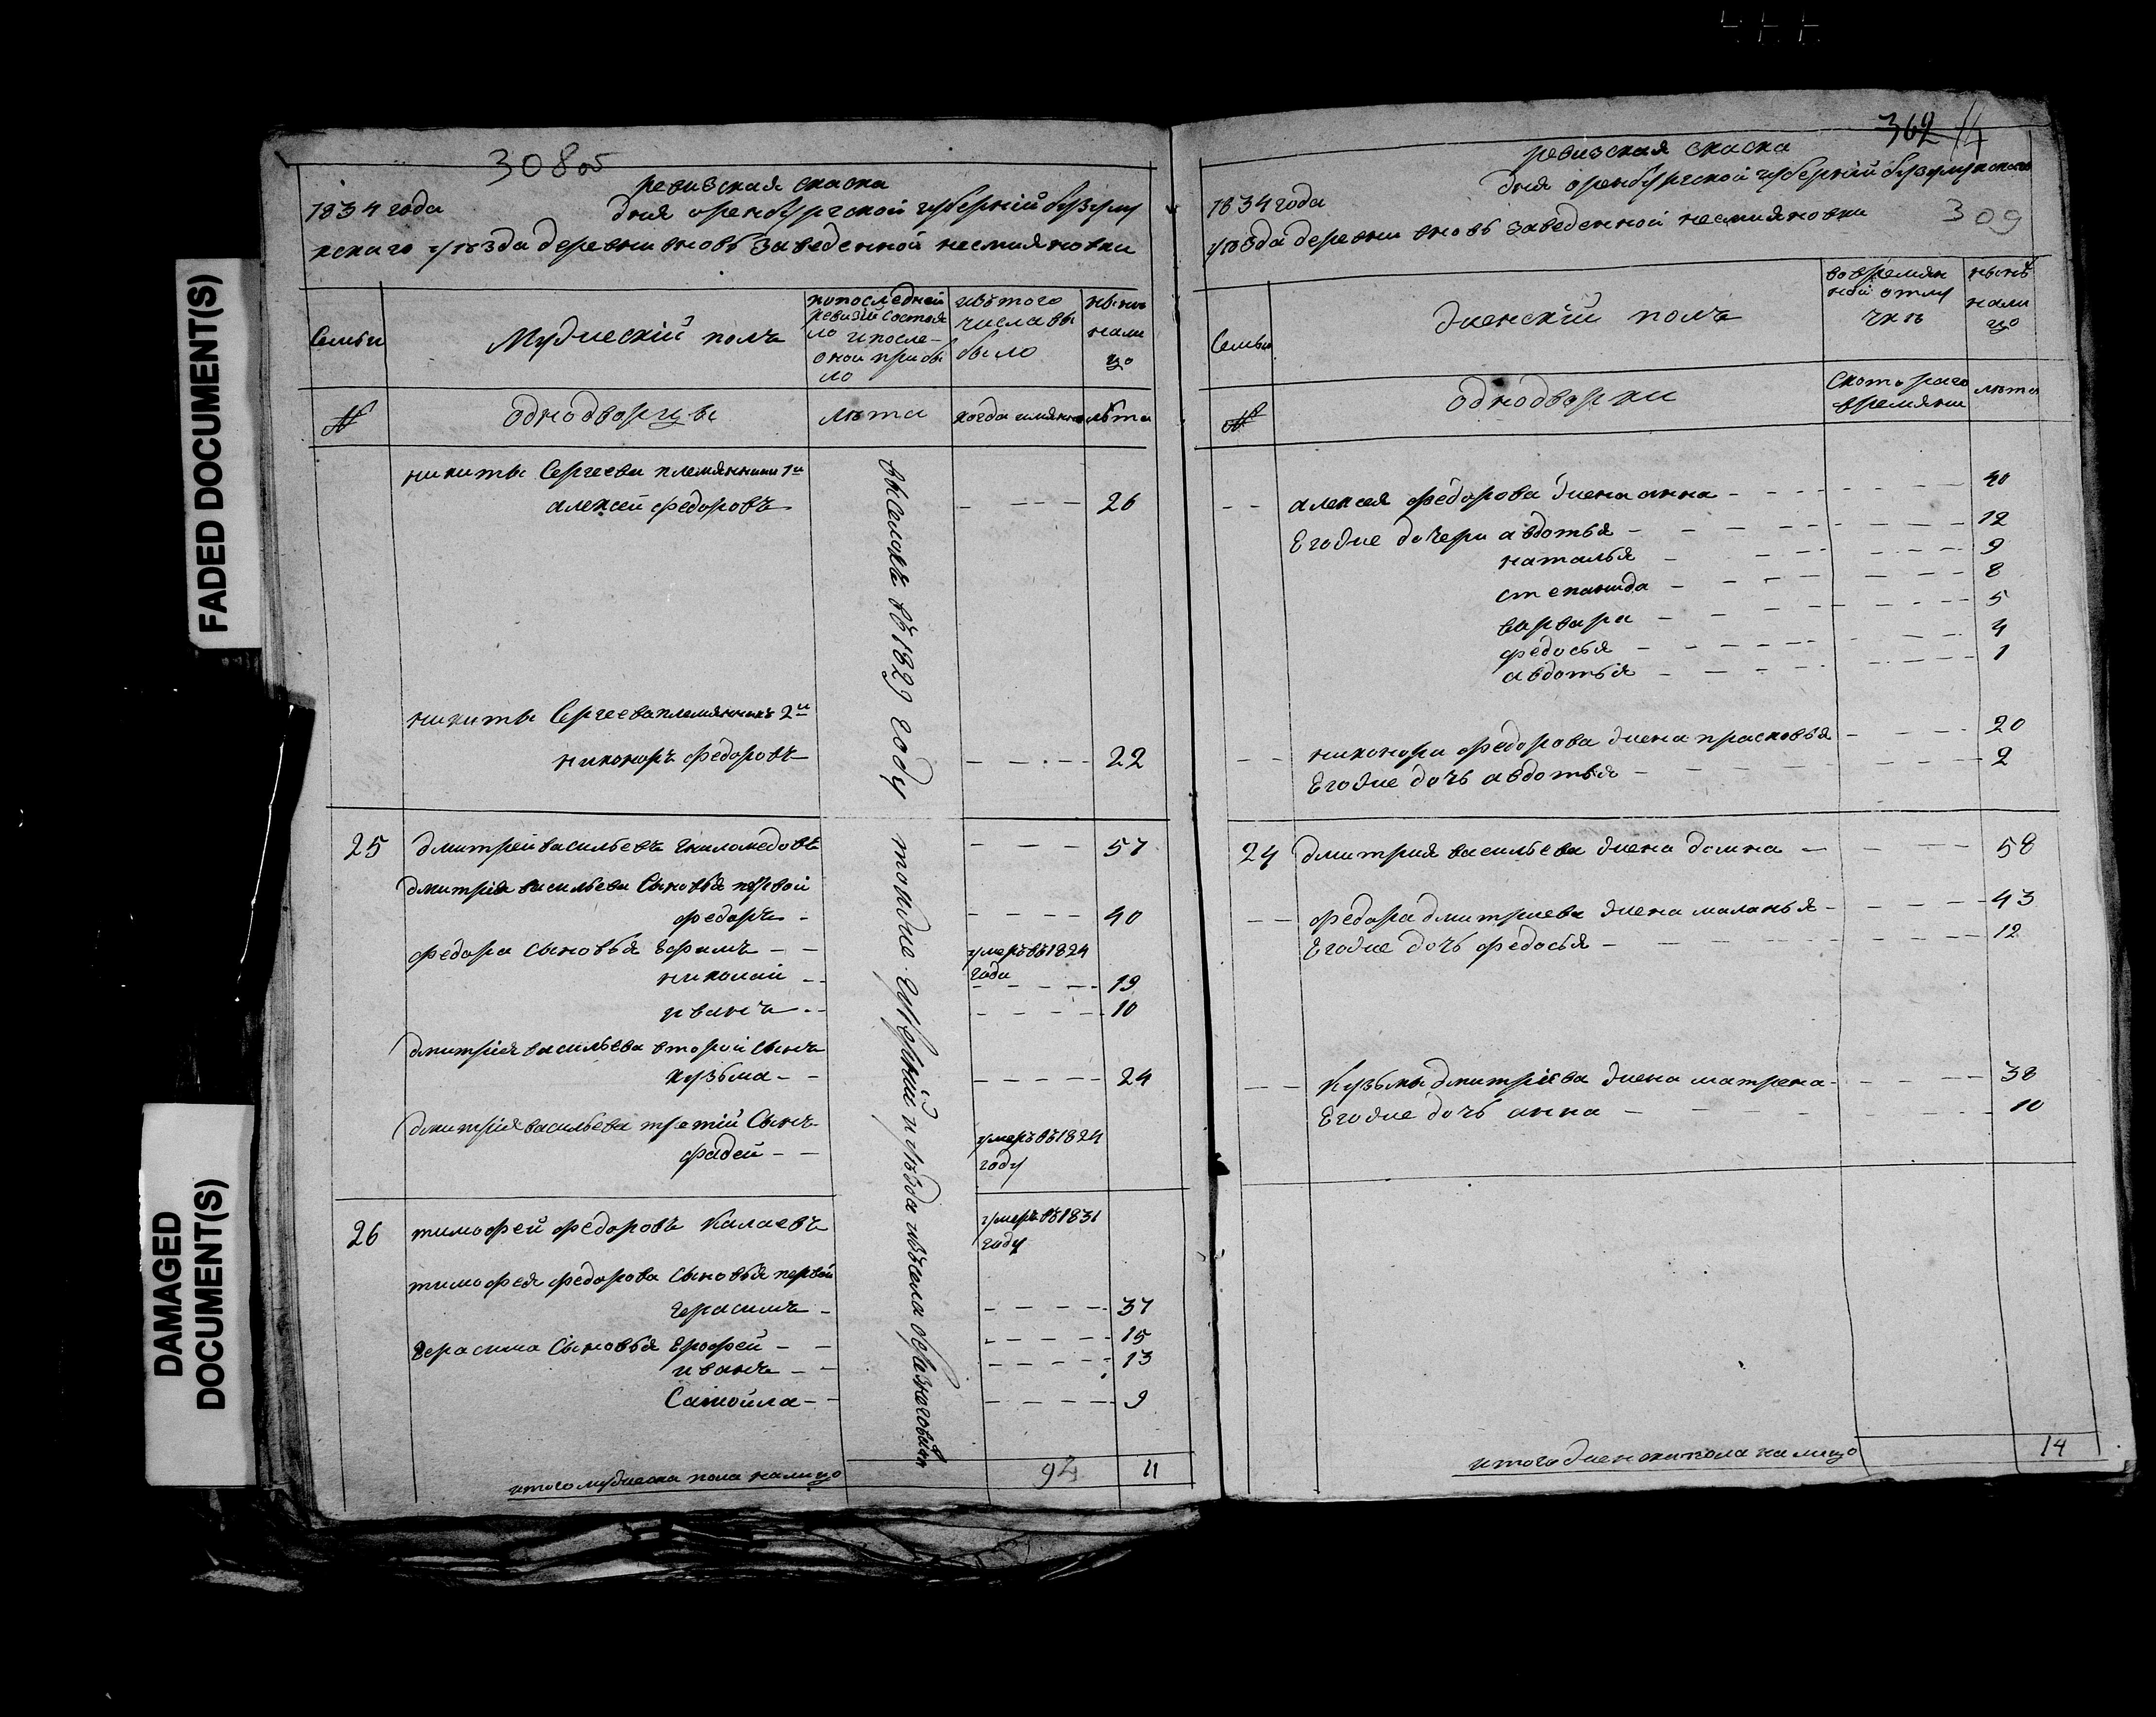 FADED DOCUMENT(S)
DAMAGED
DOCUMENT(S)
308 об
ревизская скаска
1834 года дня оренбургской губерний бузулу
кскаго уъзда деревни вновь заведенной несмияновки
Семьи
Мужескій полъ
попоследней ревизи состоя ло ипосле оной прибы ло
изтого числавы было
нынъ нали цо
№
однодворцы
лъта
когда имянно
лъта
никиты Сергеева племянники 1й
алексей федоровъ - - - 26
никиты Сергеева племянникъ 2й
никоноръ федоровъ - - - 22
25 дмитрей васильевъ гниломедовъ - - - 57
дмитрія васильева Сыновья первой
федоръ - - - - 40
федора сыновья Ефимъ - - умеръ въ 1824 года
николай - - - - - 19
иванъ - - - - - 10
дмитрія васильева второй сынъ
кузьма - - - - - 24
дмитрія васильева третій Сынъ
фадей - - умеръ въ 1824 году
26 тимофей федоровъ Калаевъ умеръ въ 1831 году
тимофея федорова Сыновья первой
герасимъ - - - - - 37
герасима Сыновья Ерофей - - - - - 15
иванъ - - - - - 13
Самойла - - - - - 9
итого мужеска пола налицо 94 11
выселокъ въ 1829 году тойже губерний и уъзда изъсела
362 14
ревизская скаска
1834 года дня оренбургской губерний бузулукскаго
уъзда деревни вновь заведенной несмияновки 309
Семьи
женскій полъ
вовремян ной отлу чкъ
нынъ нали цо
№
однодворки
Скотораго времяни
лъта
- - алексея федорова жена анна - - - 40
Егоже дочери авдотья - - - 12
наталья - - - 9
степанида - - - 8
варвара - - - 5
федосья - - - 4
авдотья - - - 1
- - никонора федорова жена прасковья - - - 20
Егоже дочь авдотья - - - 2
24 дмитрия васильева жена домна - - - 58
- - федора дмитриева жена маланья - - - 43
Егоже дочь федосья - - - 12
- - Кузьмы дмитріева жена матрена - - - 38
Егоже дочь анна - - - 10
итого женска пола налицо 14